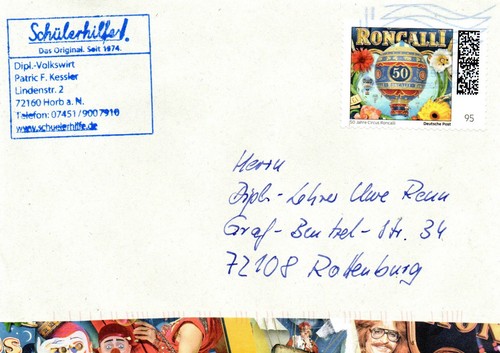 Schülerhilfe!
Das Original. Seit 1974.
Dipl.-Volkswirt
Patric F. Kessler
Lindenstr. 2
72160 Horb a. N.
Telefon: 07451/9007910
www.schuelerhilfe.de
RONCALLI
50
50 Jahre Circus Roncalli
Deutsche Post
95
Herrn
Dipl.-Lehrer Uwe Renn
Graf-Bentzel-Str. 34
72108 Rottenburg